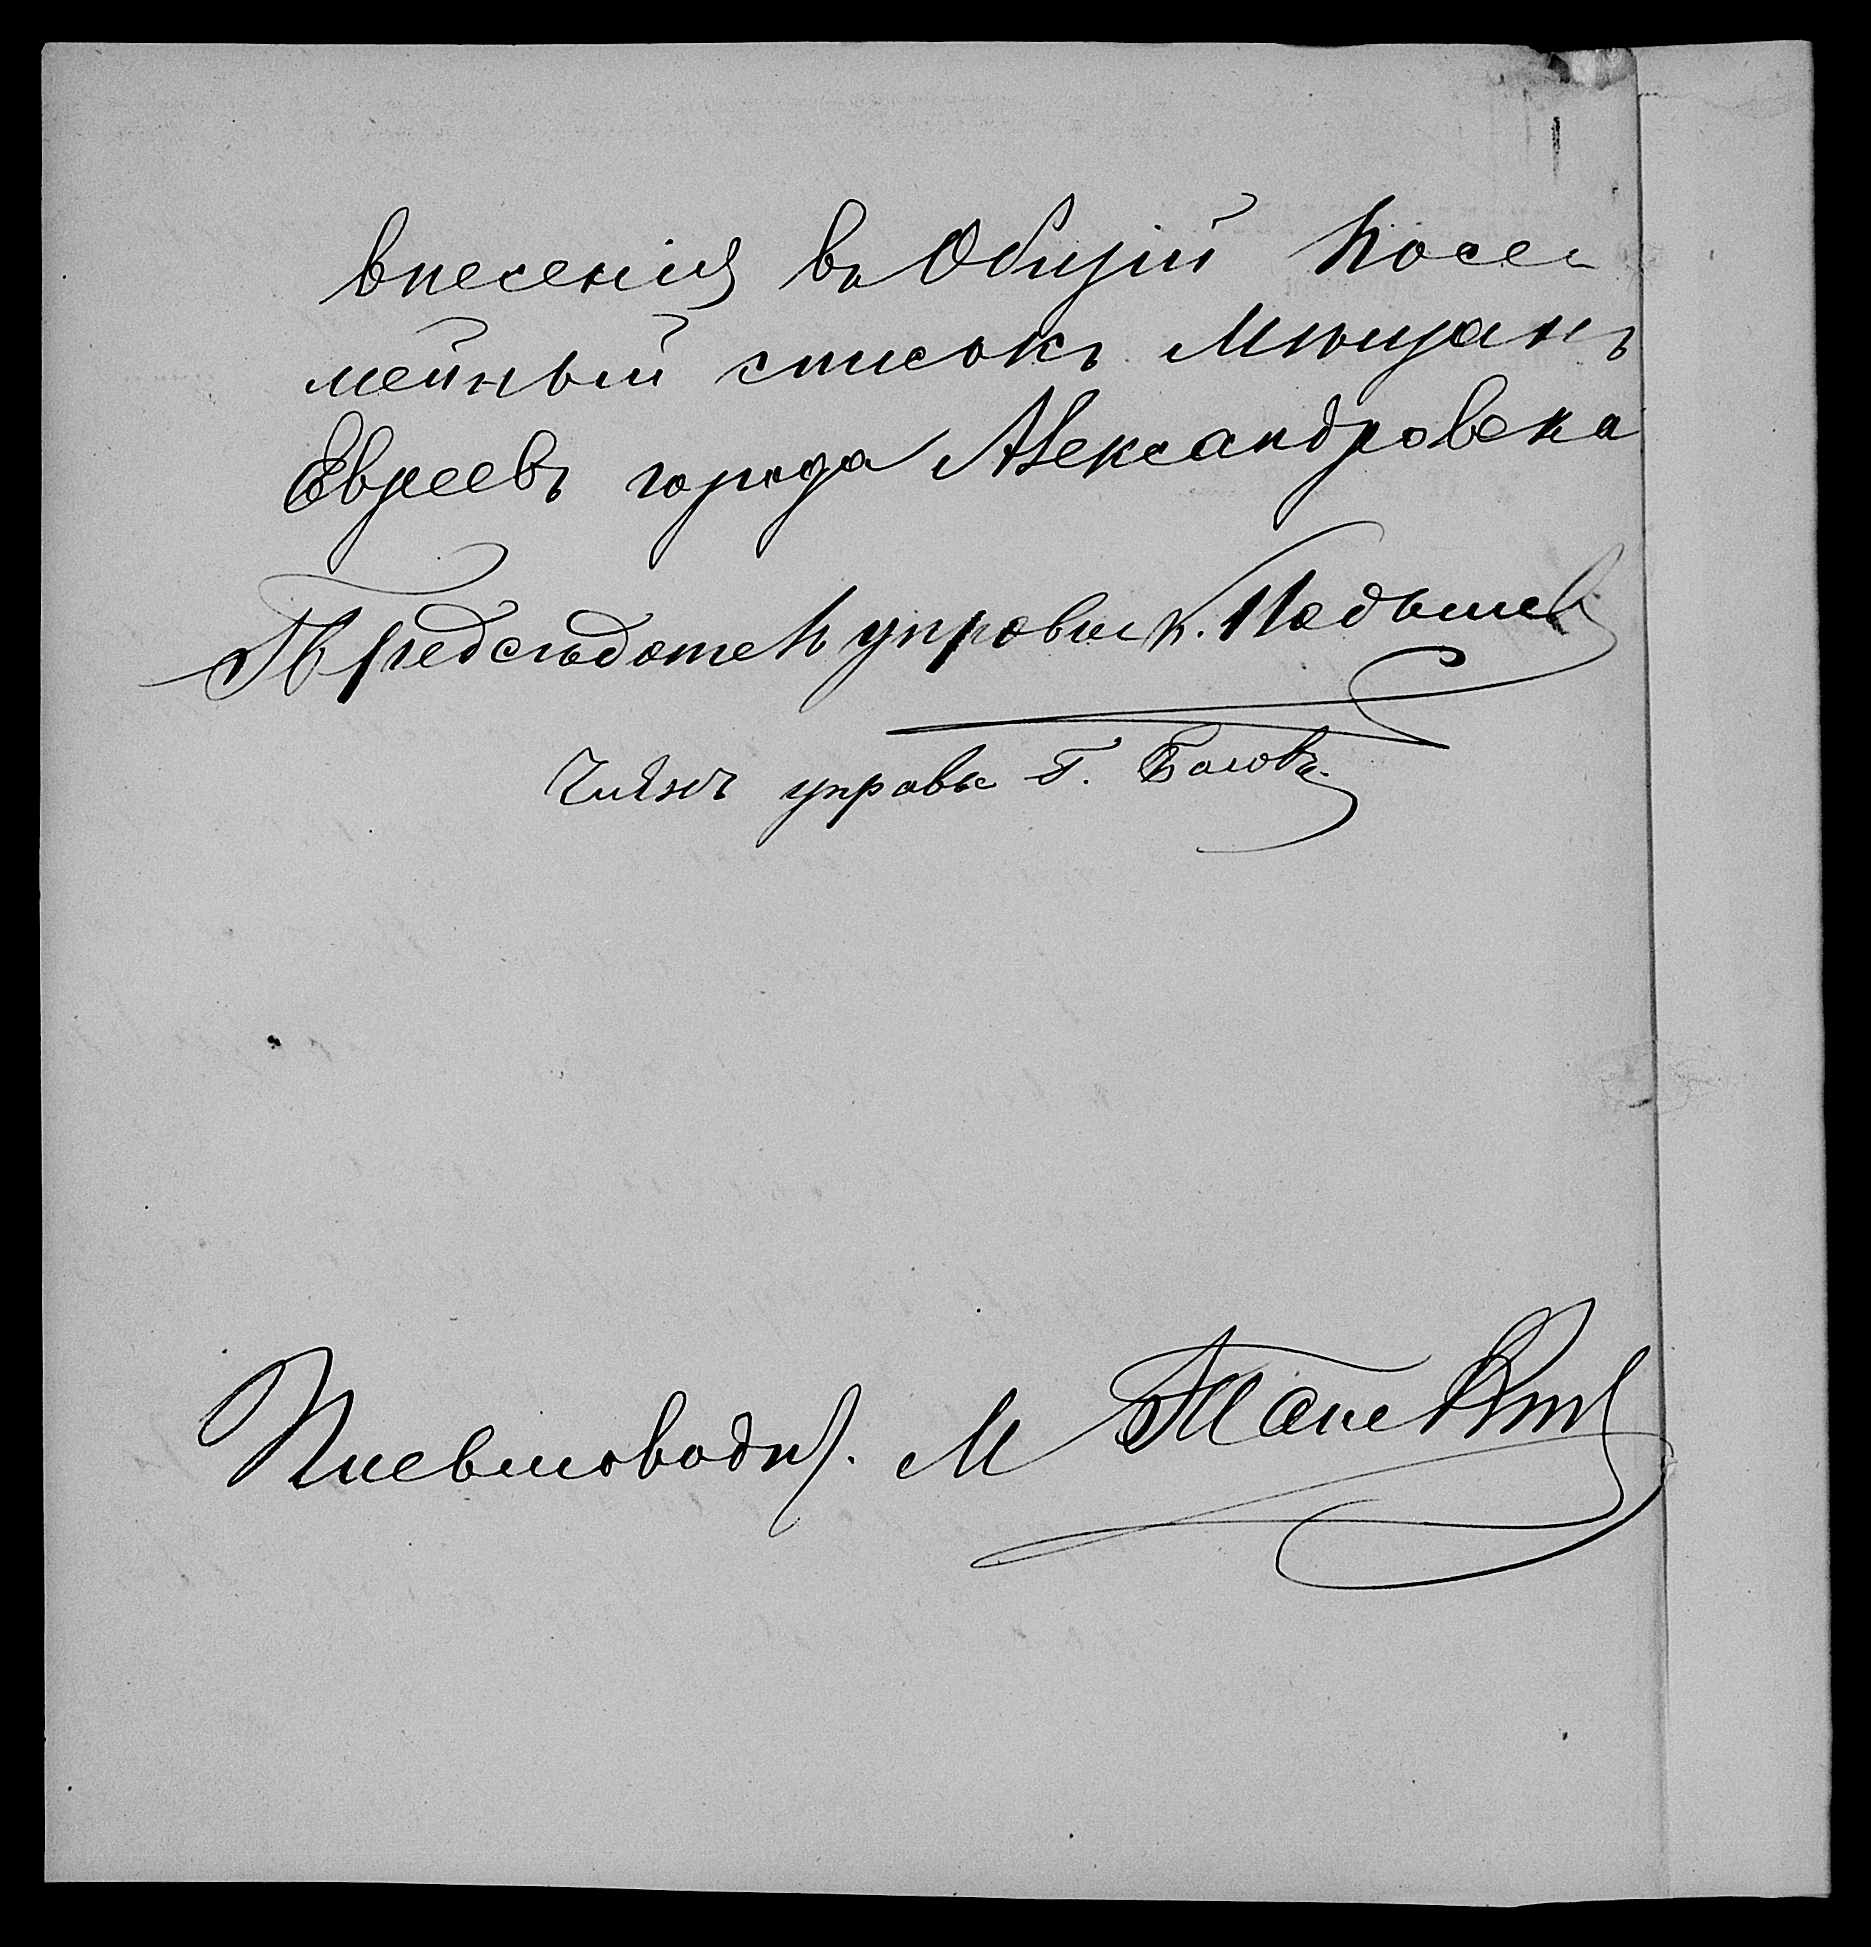 внесенія въ Общій посе-
мейный списокъ Мѣщанъ
Евреевъ города Александровска
Предсѣдатель управы К.
Членъ управы Г.
Письмоводит. М